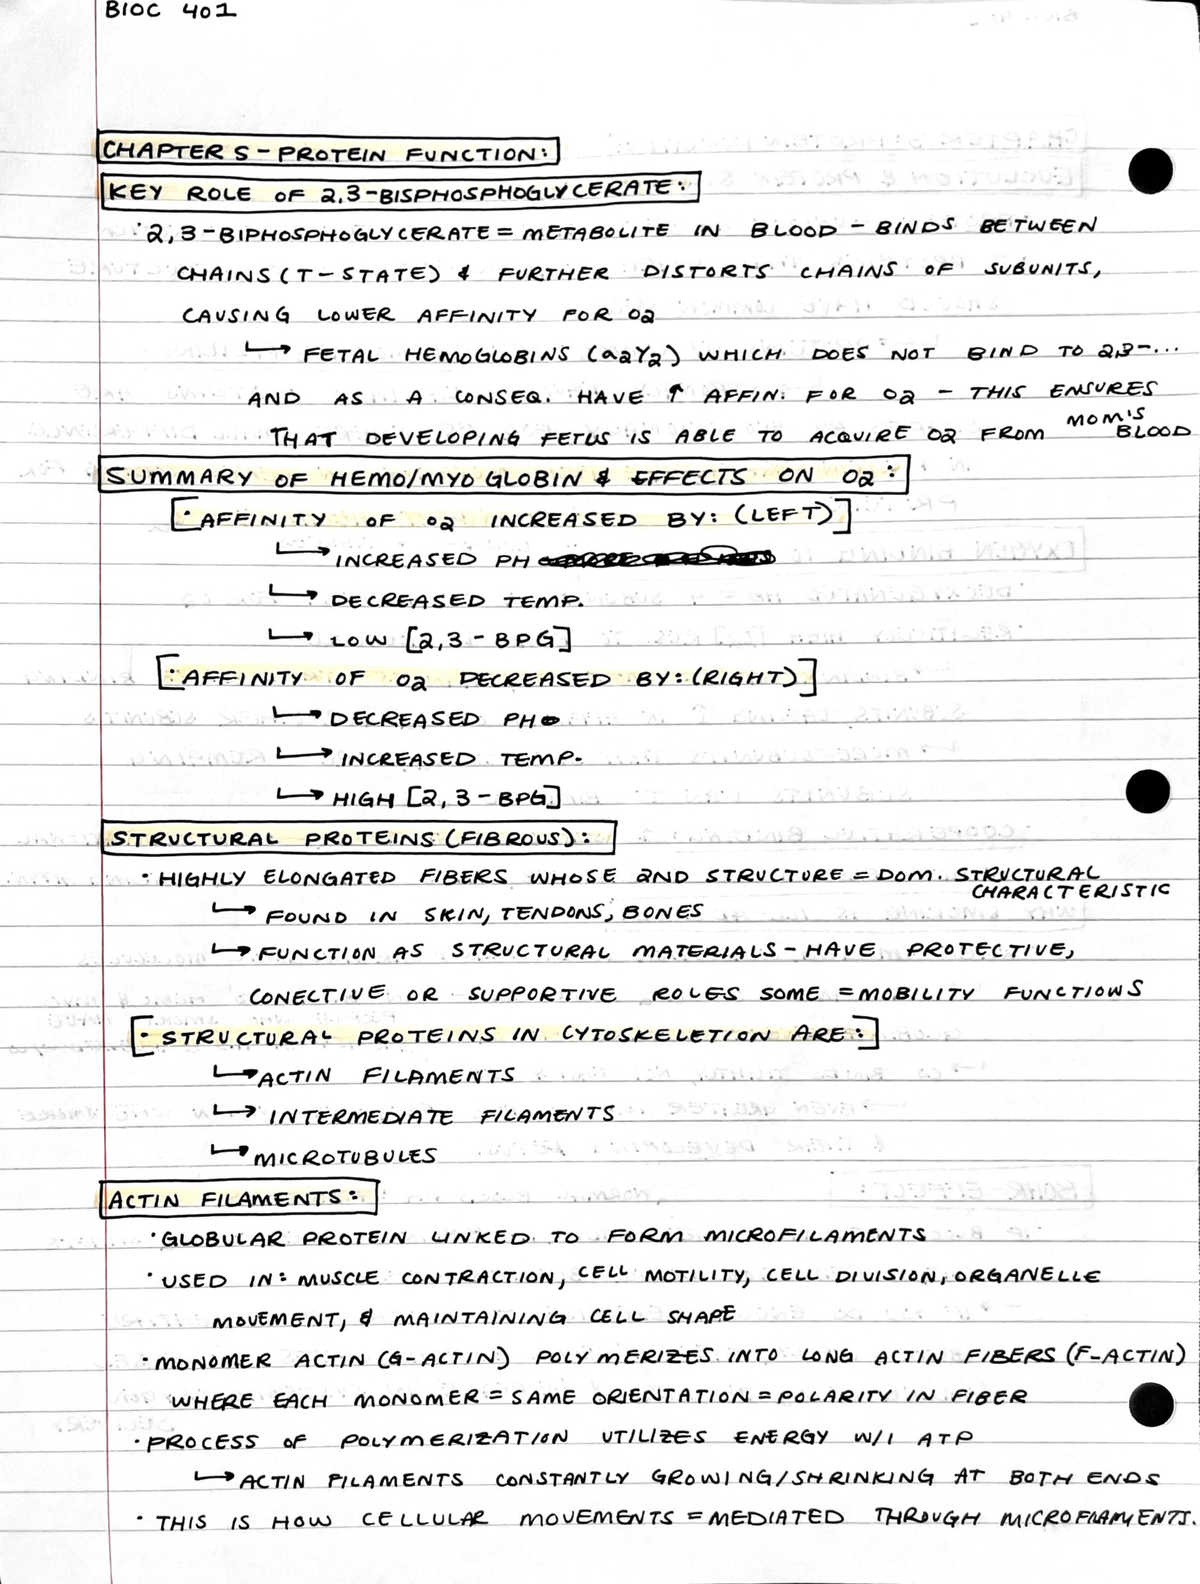 BIOC 401
CHAPTER 5 - PROTEIN FUNCTION:
KEY ROLE OF 2,3-BISPHOSPHOGLYCERATE:
· 2,3-BIPHOSPHOGLYCERATE = METABOLITE IN BLOOD - BINDS BETWEEN
CHAINS (T-STATE) & FURTHER DISTORTS CHAINS OF SUBUNITS,
CAUSING LOWER AFFINITY FOR O2
↳ FETAL HEMOGLOBINS (α2γ2) WHICH DOES NOT BIND TO 2,3-...
AND AS A CONSEQ. HAVE ↑ AFFIN. FOR O2 - THIS ENSURES
THAT DEVELOPING FETUS IS ABLE TO ACQUIRE O2 FROM MOM'S BLOOD
SUMMARY OF HEMO/MYOGLOBIN & EFFECTS ON O2:
[· AFFINITY OF O2 INCREASED BY: (LEFT)]
↳ INCREASED PH
↳ DECREASED TEMP.
↳ LOW [2,3-BPG]
[· AFFINITY OF O2 DECREASED BY: (RIGHT)]
↳ DECREASED PH
↳ INCREASED TEMP.
↳ HIGH [2,3-BPG]
STRUCTURAL PROTEINS (FIBROUS):
· HIGHLY ELONGATED FIBERS WHOSE 2ND STRUCTURE = DOM. STRUCTURAL
CHARACTERISTIC
↳ FOUND IN SKIN, TENDONS, BONES
↳ FUNCTION AS STRUCTURAL MATERIALS - HAVE PROTECTIVE,
CONECTIVE OR SUPPORTIVE ROLES SOME = MOBILITY FUNCTIONS
[· STRUCTURAL PROTEINS IN CYTOSKELETION ARE:]
↳ ACTIN FILAMENTS
↳ INTERMEDIATE FILAMENTS
↳ MICROTUBULES
ACTIN FILAMENTS:
· GLOBULAR PROTEIN LINKED TO FORM MICROFILAMENTS
· USED IN: MUSCLE CONTRACTION, CELL MOTILITY, CELL DIVISION, ORGANELLE
MOVEMENT, & MAINTAINING CELL SHAPE
· MONOMER ACTIN (G-ACTIN) POLYMERIZES INTO LONG ACTIN FIBERS (F-ACTIN)
WHERE EACH MONOMER = SAME ORIENTATION = POLARITY IN FIBER
· PROCESS OF POLYMERIZATION UTILIZES ENERGY W/I ATP
↳ ACTIN FILAMENTS CONSTANTLY GROWING/SHRINKING AT BOTH ENDS
· THIS IS HOW CELLULAR MOVEMENTS = MEDIATED THROUGH MICROFILAMENTS.